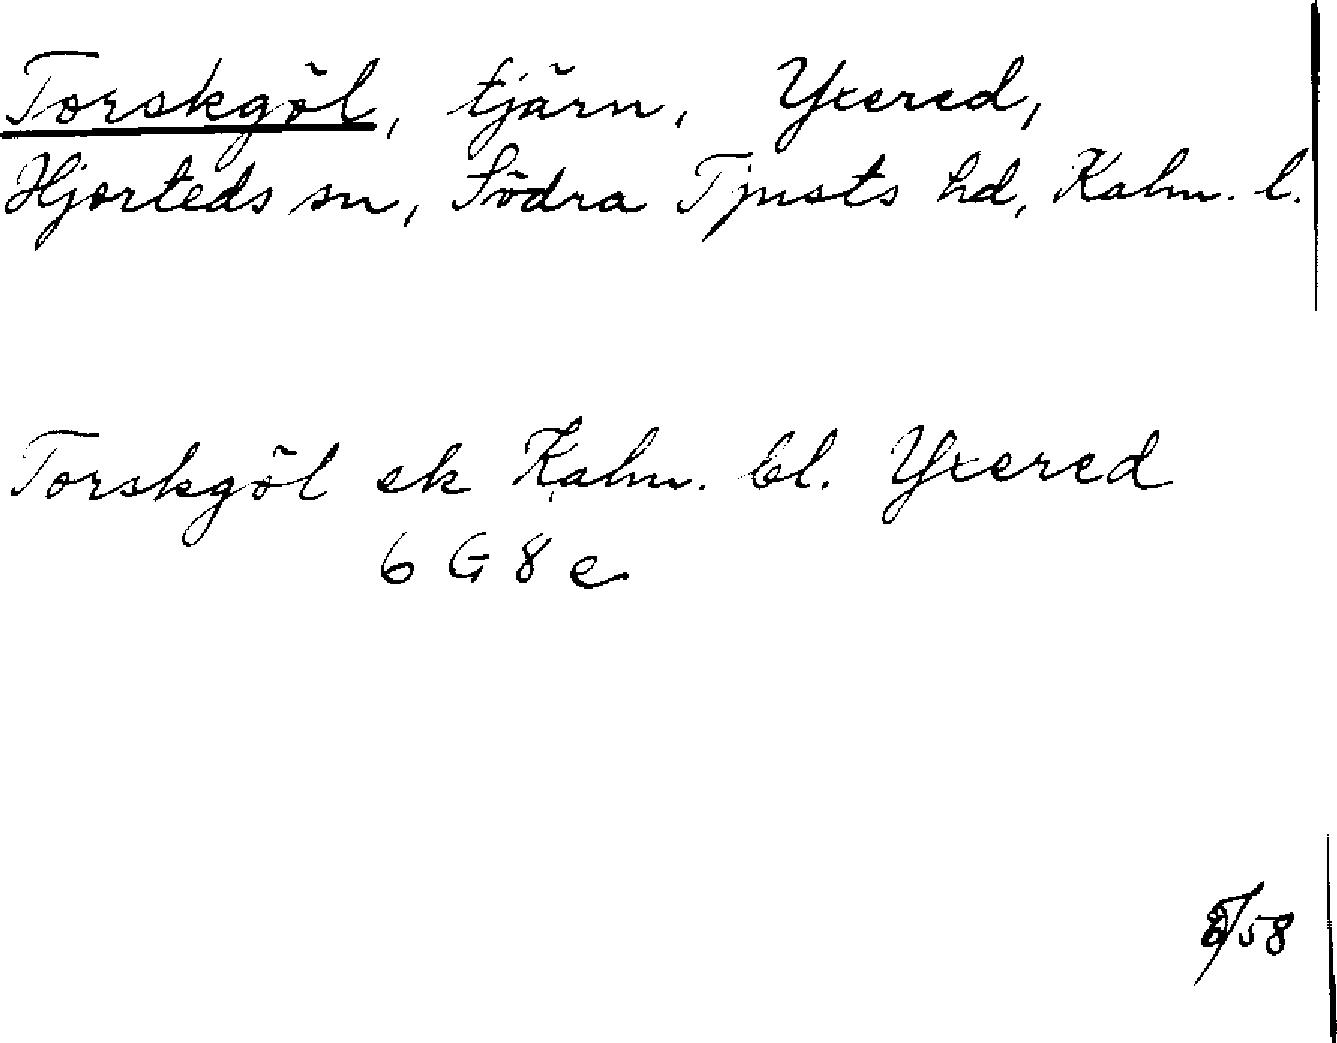 Torskgöl, tjärn, Yxered,
Hjorteds sn, Södra Tjusts hd, Kalm. l.
Torskgöl ek Kalm. bl. Yxered
6 G 8 e
/58